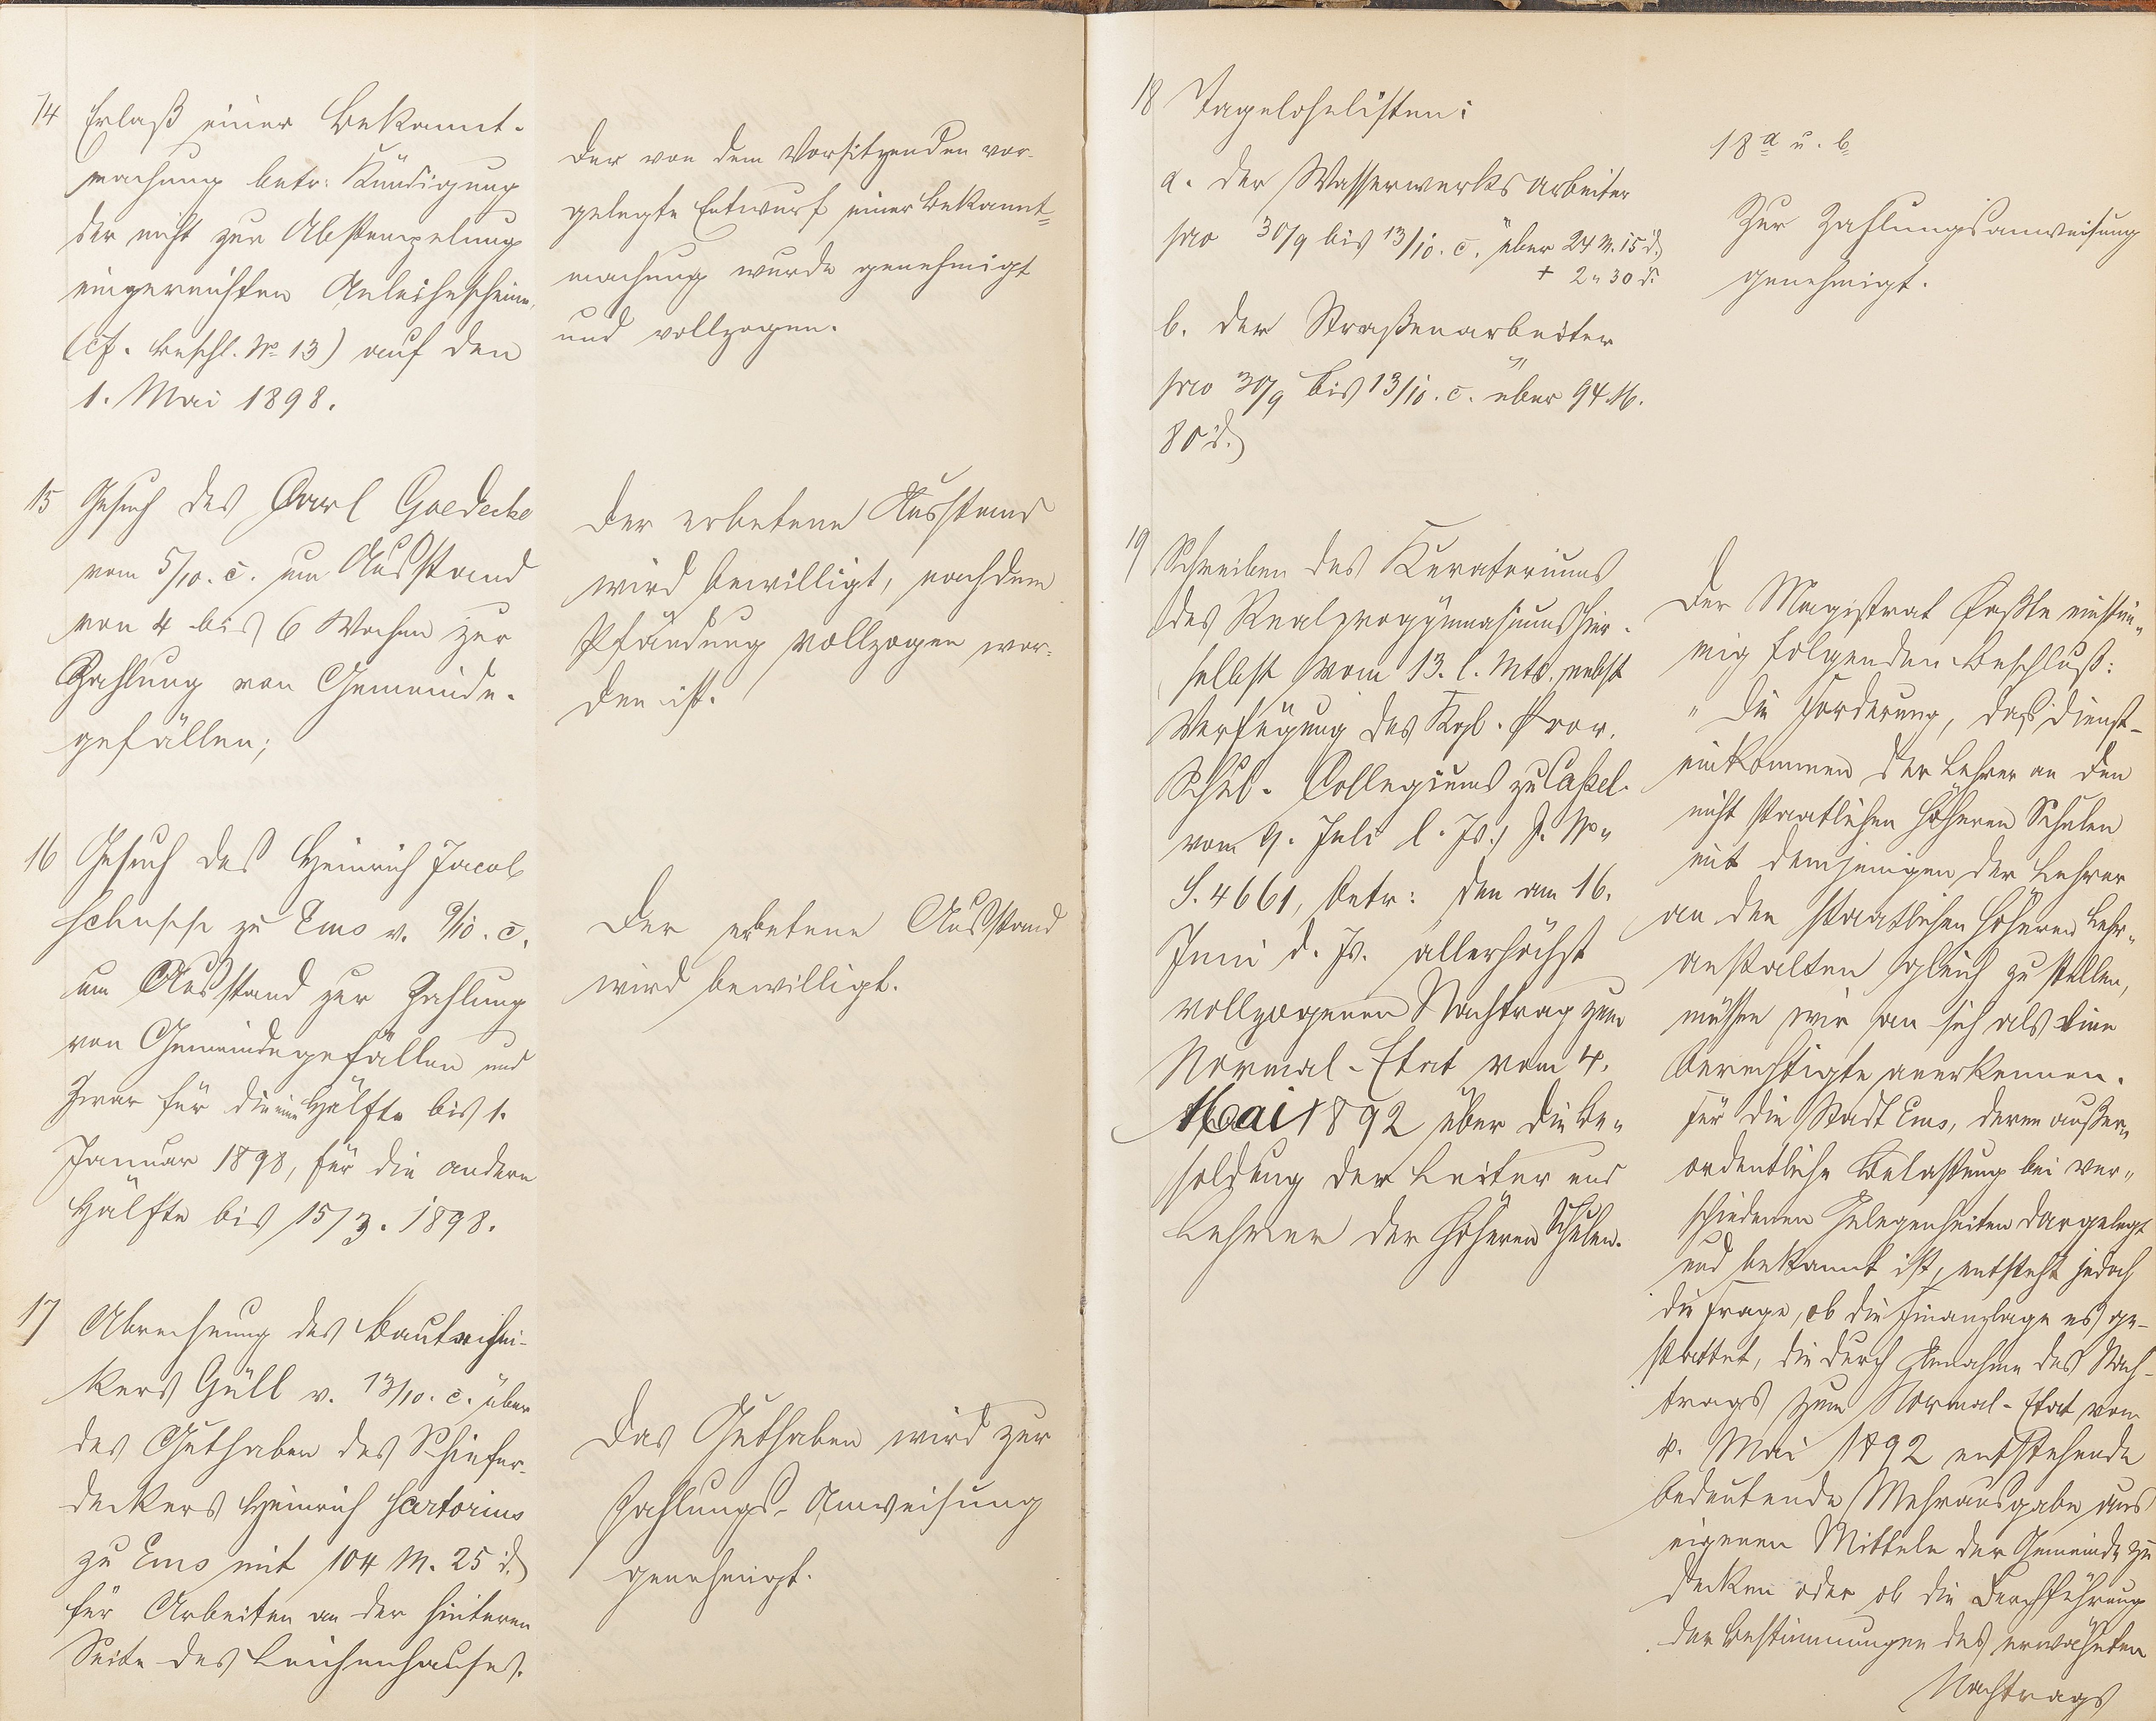 14 Erlaß einer Bekannt-
machung betr: Kündigung
der nicht zur Abstempelung
eingereichten Anleihescheine,
(cf. Beschl. No 13) auf den
1. Mai 1898.
Der von dem Vorsitzenden vor-
gelegte Entwurf einer Bekannt=
machung wurde genehmigt
und vollzogen.
15 Gesuch des Carl Goedecke
vom 5/10. c. um Ausstand
von 4 bis 6 Wochen zur
Zahlung von Gemeinde-
gefällen;
Der erbetene Ausstand
wird bewilligt, nachdem
Pfändung vollzogen wor-
den ist.
16 Gesuch des Heinrich Jacob
Schupp zu Ems v. 9/10. c.
um Ausstand zur Zahlung
von Gemeindegefällen und
zwar für die eine Hälfte bis 1.
Januar 1898, für die andere
Hälfte bis 15/3. 1898.
Der erbetene Ausstand
wird bewilligt.
17 Abrechnung des Bautechni-
kers Güll v. 13/10. c. über
das Guthaben des Schiefer-
deckers Heinrich Sartorius
zu Ems mit 104 M. 25 d.
für Arbeiten an der hinteren
Seite des Leichenhauses.
Das Guthaben wird zur
Zahlungs-Anweisung
genehmigt.
18 Tagelohnlisten:
a. der Wasserwerksarbeiter
pro 30/9 bis 13/10. c. über 24 M. 15 d.
+ 2 " 30 d.
b. der Straßenarbeiter
pro 30/9 bis 13/10. c. über 94 M.
80 d.
18 a u. b
Zur Zahlungsanweisung
genehmigt.
19 Schreiben des Kuratoriums
des Realprogymnasiums hier-
selbst vom 13. l. Mts. nebst
Verfügung des Kgl. Prov.
Schul-Collegiums zu Cassel
vom 9. Juli l. Js., J. No
S. 4661, betr: den am 16.
Juni d. Js. allerhöchst
vollzogenen Nachtrag zum
Normal-Etat vom 4.
Mai 1892 über die Be-
soldung der Leiter und
Lehrer der höheren Schulen.
Der Magistrat faßte einstim-
mig folgenden Beschluß:
"Die Forderung, das Dienst-
einkommen der Lehrer an den
nicht staatlichen höheren Schulen
mit demjenigen der Lehrer
an den staatlichen höheren Lehr-
anstalten gleich zu stellen,
müssen wir an sich als eine
berechtigte anerkennen.
Für die Stadt Ems, deren außer-
ordentliche Belastung bei ver-
schiedenen Gelegenheiten dargelegt
und bekannt ist, entsteht jedoch
die Frage, ob die Finanzlage es ge-
stattet, die durch Annahme des Nach-
trags zum Normal-Etat vom
4. Mai 1892 entstehende
bedeutende Mehrausgabe aus
eigenen Mitteln der Gemeinde zu
decken oder ob die Durchführung
der Bestimmungen des erwähnten
Nachtrags